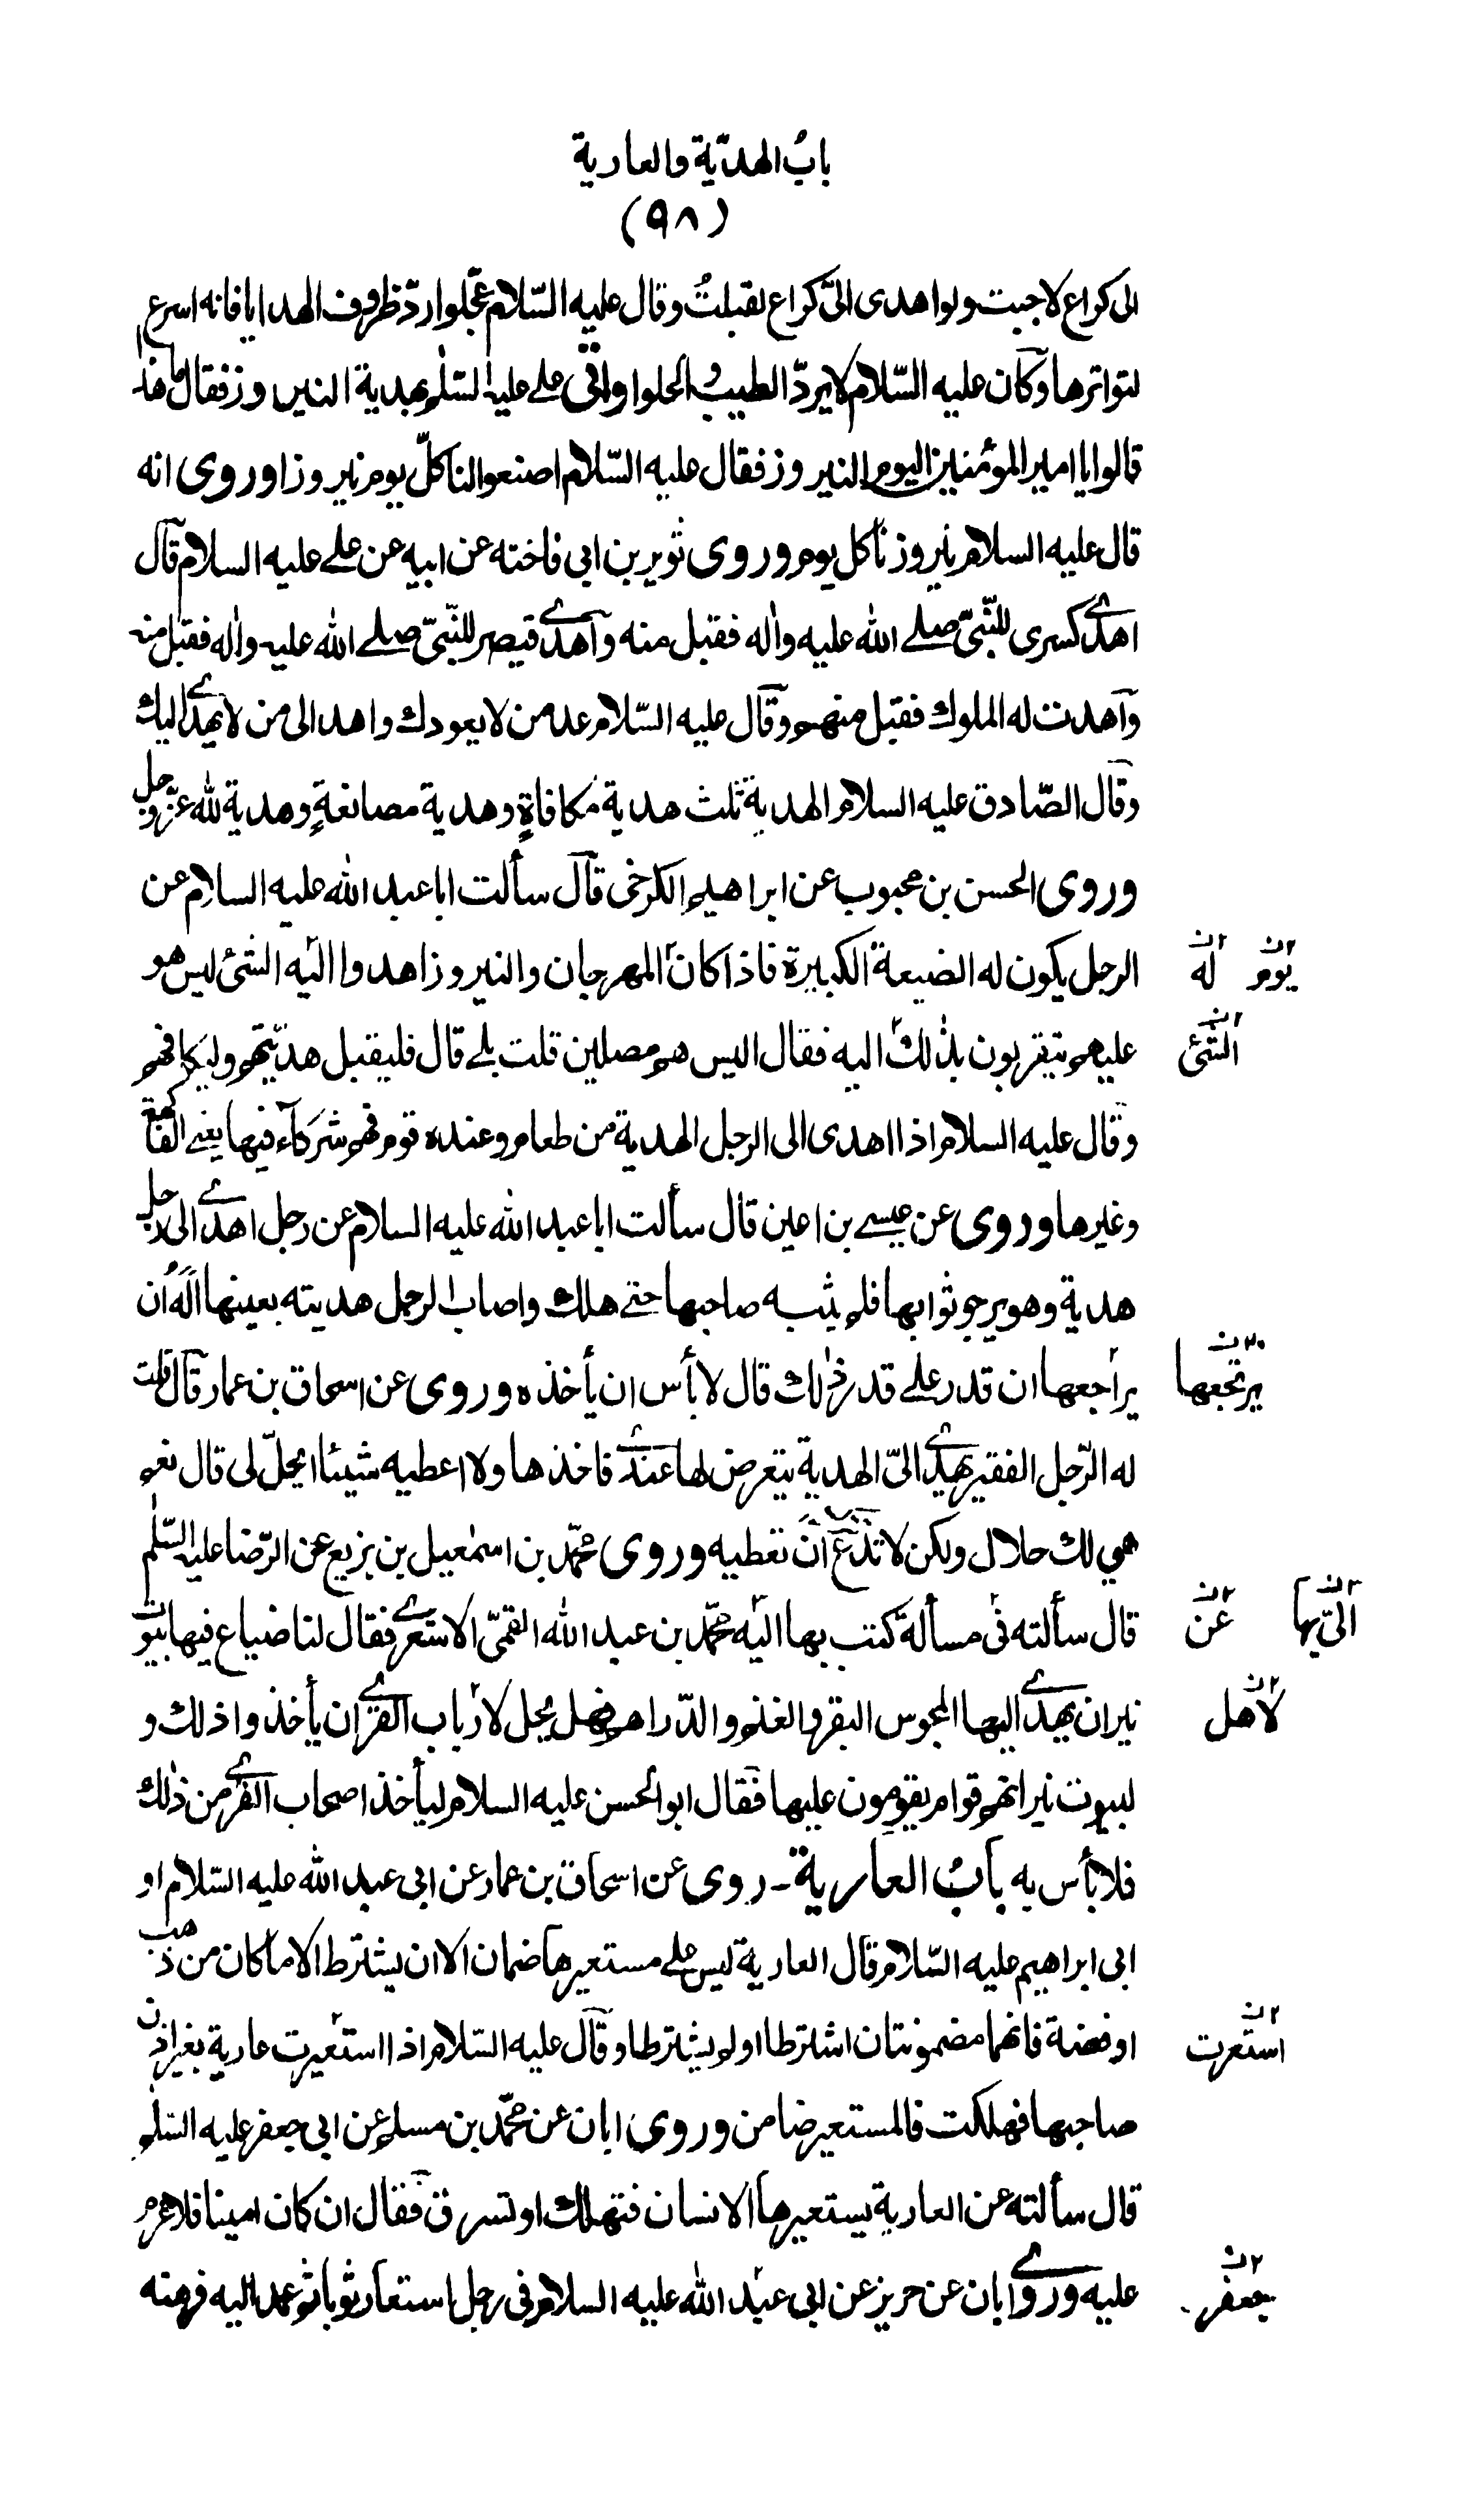 باب الهدّية والعارية
(٩٨)
الى كراع لاجبت ولو اهدى الىّ كراع لقبلتُ وقال عليه السّلام عجّلوا ردّ ظروف الهدايا فانه اسرع
لتواترها وكان عليه السّلام لا يردّ الطيب والحلوا واتى على عليه السّلم بهدية النيروز فقال ما هذا
قالوا يا امير المؤمنين اليوم النيروز فقال عليه السّلام اصنعوا لنا كلّ يوم نيروزا وروى انه
قال عليه السلام نيروزنا كل يوم وروى ثوير بن ابى فاخته عن ابيه عن على عليه السلام قال
اهدى كسرى للنّبىّ صلى الله عليه واله فقبل منه واهدى قيصر للنّبىّ صلى الله عليه واله فقبل منه
واهدت له الملوك فقبل منهم وقال عليه السّلام عد من لا يعودك واهد الى من لا يهدى اليك
وقال الصّادق عليه السلام الهدية ثلث هدية مكافاةٍ وهدية مصانعةٍ وهدية لله عزّ وجل
وروى الحسن بن محبوب عن ابراهيم الكرخى قال سألت ابا عبد الله عليه السلام عن
الرجل يكون له الضيعة الكبيرة فاذا كان المهرجان والنيروز اهدوا اليه الشئ ليس هو
يوم له
عليهم يتقربون بذلك اليه فقال اليس هم مصلين قلت بلى قال فليقبل هديّتهم وليكافهم
الشئ
وقال عليه السلام اذا اهدى الى الرجل الهدية من طعام وعنده قوم فهم شركآء فيها يعنى الفاكهة
وغيرها وروى عن عيسى بن اعين قال سألت ابا عبد الله عليه السلام عن رجل اهدى الى رجل
هدية وهو يرجو ثوابها فلم يثبه صاحبها حتى هلك واصاب الرجل هديته بعينها اله ان
يراجعها ان قدر على قدر ذلك قال لا بأس ان يأخذه وروى عن اسحاق بن عمار قال قلت
يرتجعها
له الرّجل الفقير يهدى الىّ الهدية يتعرض لما عندى فاخذها ولا اعطيه شيئا ايحلّ لى قال نعم
هى لك حلال ولكن لا تدع ان تعطيه وروى محمّد بن اسمعيل بن بزيع عن الرّضا عليه السّلم
قال سألته فى مسألة كتب بها اليه محمّد بن عبد الله القمّى الاشعرى فقال لنا ضياع فيها بيوت
عن الىّ بها
نيران يهدى اليها المجوس البقر والغنم والدّراهم فهل يحل لارباب القرى ان يأخذوا ذلك و
لاهل
لبيوت نيرانهم قوام يقومون عليها فقال ابو الحسن عليه السلام ليأخذ اصحاب القرى من ذلك
فلا بأس به باب العارية - روى عن اسحاق بن عمار عن ابى عبد الله عليه السّلام او
ابى ابراهيم عليه السّلام قال العارية ليس على مستعيرها ضمان الا ان يشترط الا ما كان من ذهب
او فضة فانهما مضمونتان اشترطا او لم يشترطا وقال عليه السّلام اذا استعيرت عارية بغير اذن
استعرت
صاحبها فهلكت فالمستعير ضامن وروى ابان عن محمّد بن مسلم عن ابى جعفر عليه السّلم
قال سألته عن العارية يستعيرها الانسان فتهلك او تسرق فقال ان كان امينا فلا غرم
عليه وروى ابان عن حريز عن ابى عبد الله عليه السلام فى رجل استعار ثوبا ثم عمد اليه فرهنه
جعفر